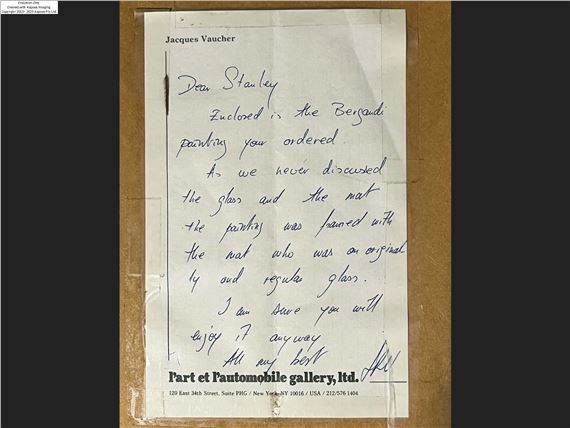 Evaluation Only
Created with Aspose.Imaging
Copyright 2010-2025 Aspose Pty Ltd.
Jacques Vaucher
Dear Stanley
Enclosed is the Bergandi
painting your ordered.
As we never discussed
the glass and the mat
the painting was framed with
the mat who was on original
ly and regular glass.
I am sure you will
enjoy it anyway
All my best
l'art et l'automobile gallery, ltd.
120 East 34th Street, Suite PHG / New York NY 10016 / USA / 212/576 1404